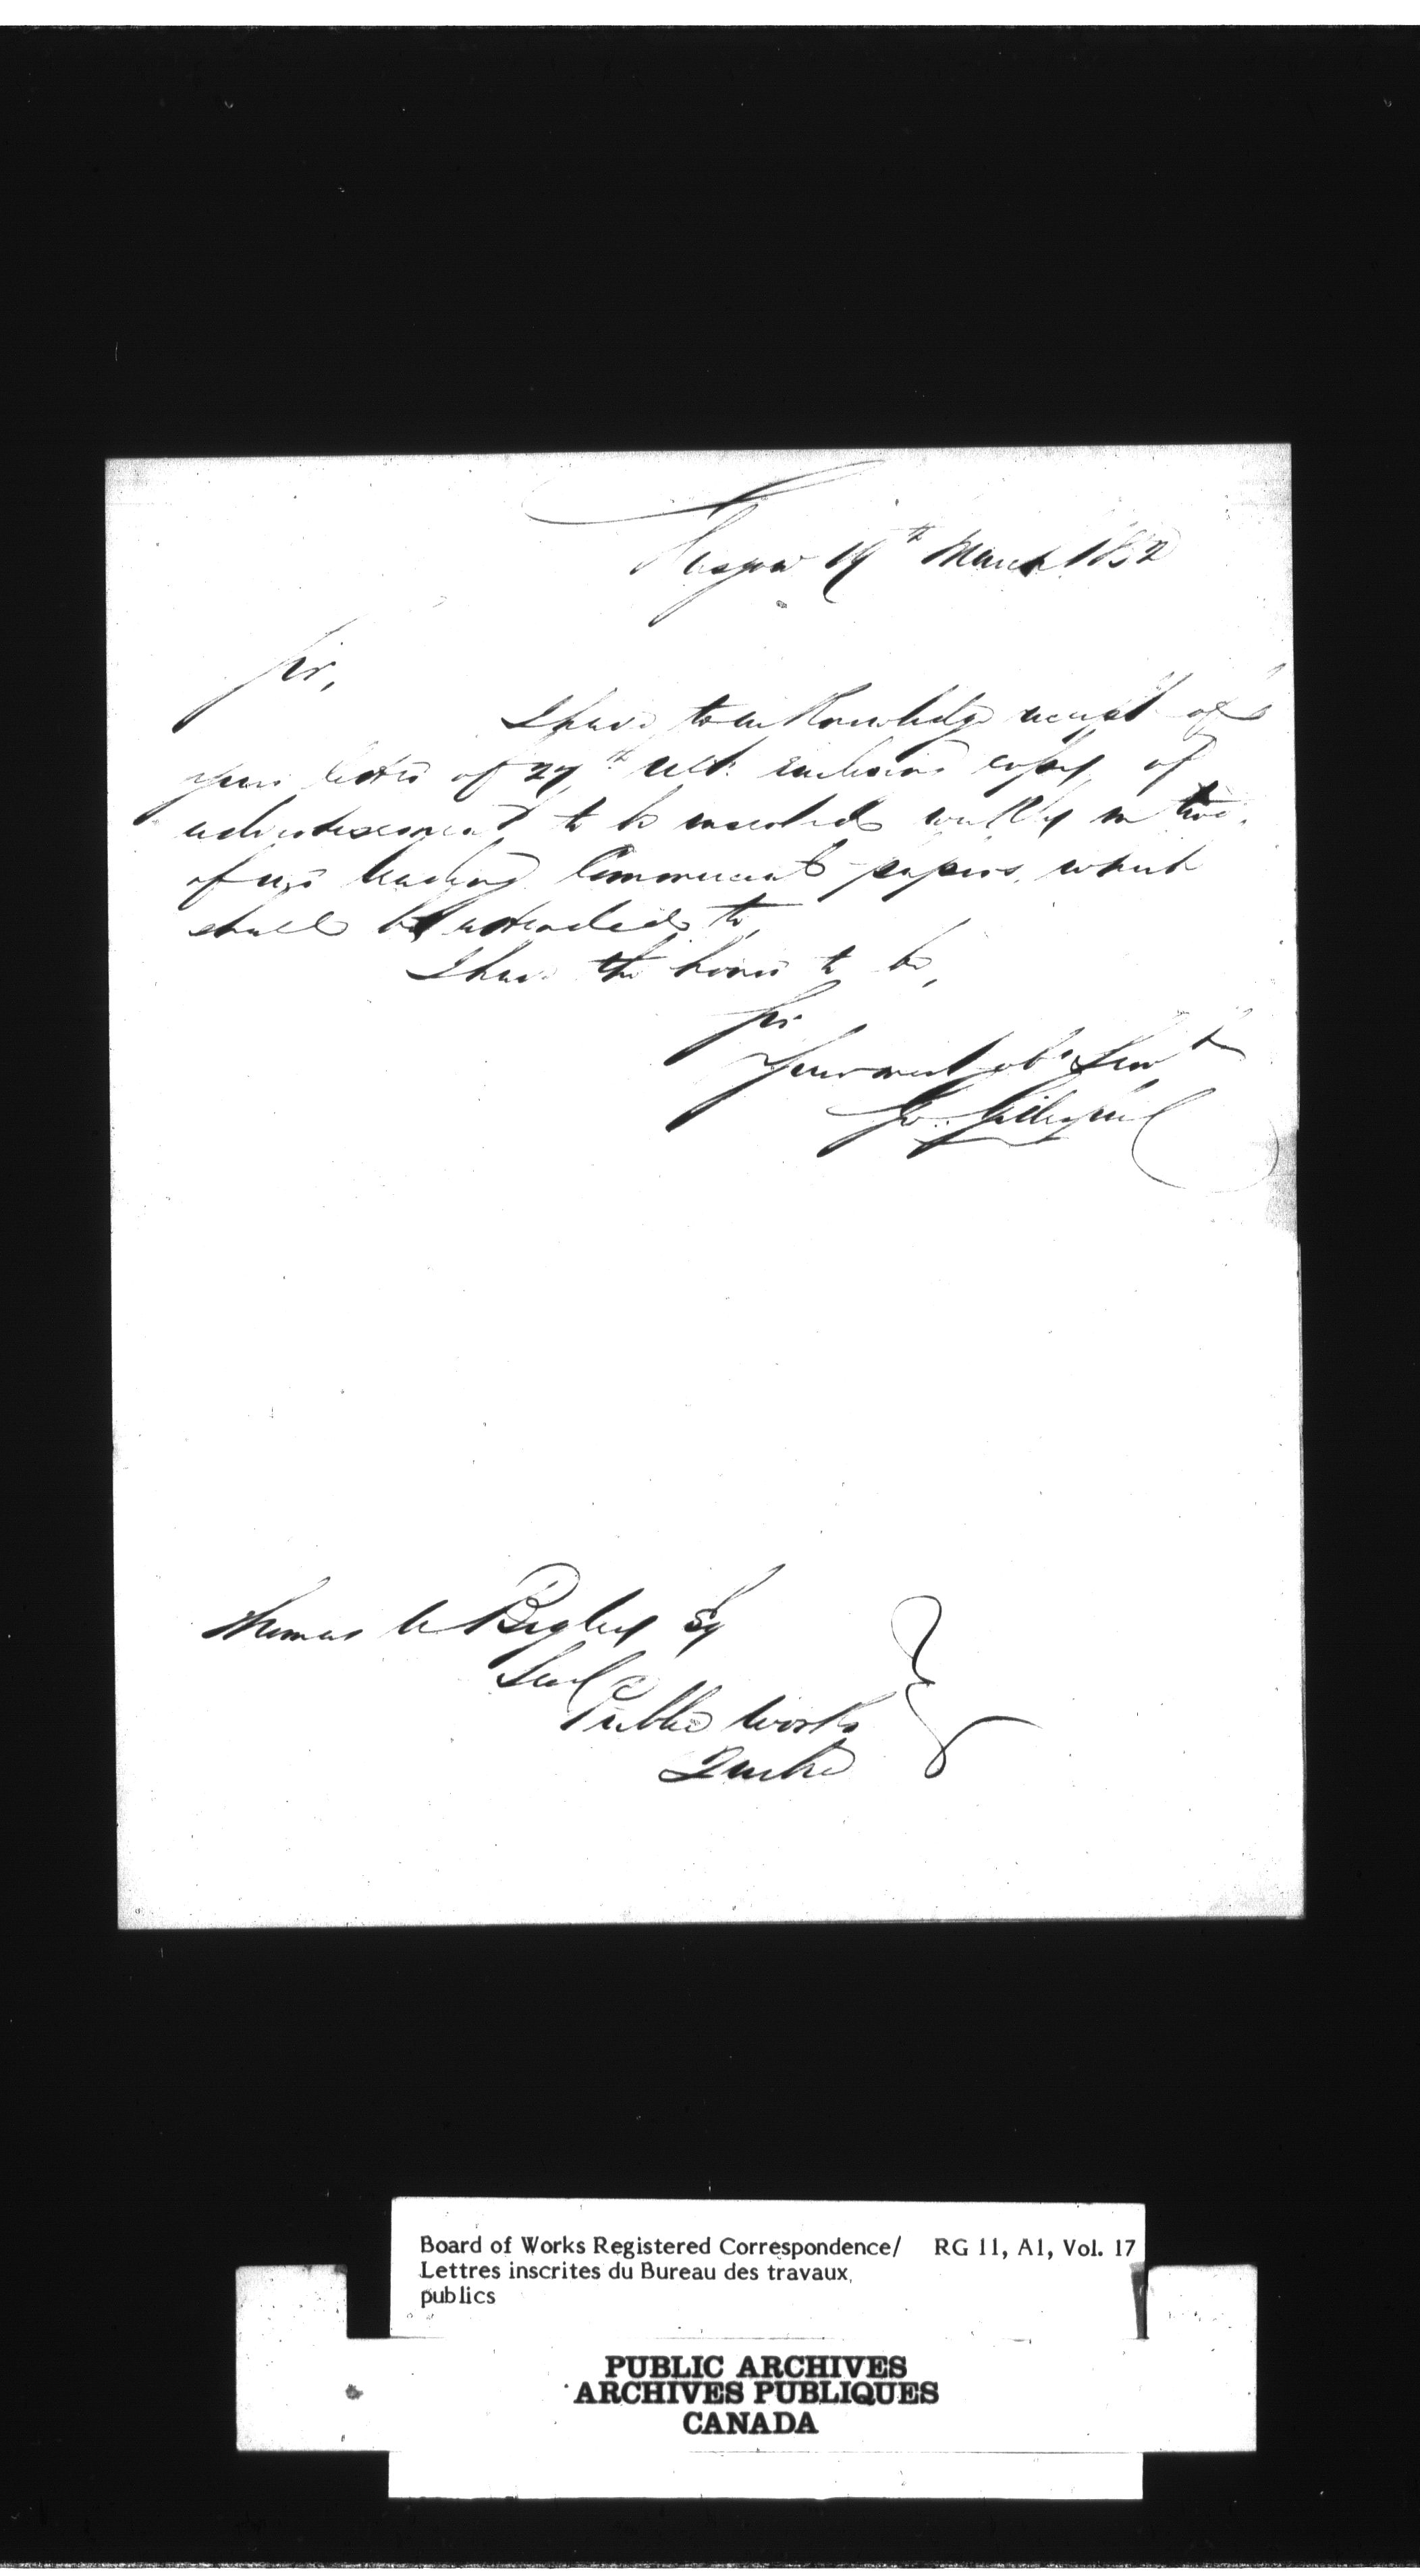 Glasgow 19th March 1852
Sir,
I have to acknowledge receipt of
your letter of 27th ult. enclosing copy of
advertisement to be inserted weekly in two
of our leading Commercial papers, which
shall be attended to,
I have the honor to be,
Sir
Your most obt Servt
Go. Gillespie
Thomas A Begley Esq
Secy
Public Works
Quebec
Board of Works Registered Correspondence/ RG 11, A1, Vol. 17
Lettres inscrites du Bureau des travaux
publics
PUBLIC ARCHIVES
ARCHIVES PUBLIQUES
CANADA